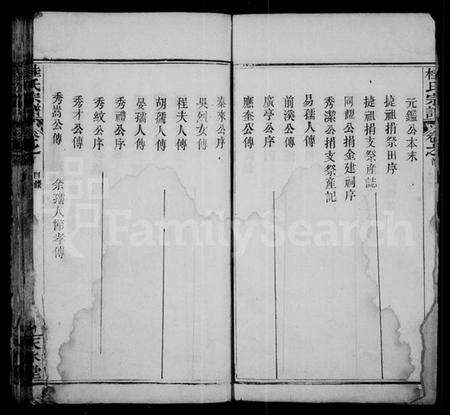 元鑑公本末
捷祖捐祭田序
捷祖捐支祭產誌
阿耀公捐金建祠序
秀潔公捐支祭產記
易孺人傳
前溪公傳
廣亭公序
應奎公傳
秦來公序
吳烈女傳
程夫人傳
胡孺人傳
晏孺人傳
秀禮公序
秀紋公序
秀才公傳
秀嵩公傳 余孺人節孝傳
氏宗譜
目錄
FamilySearch